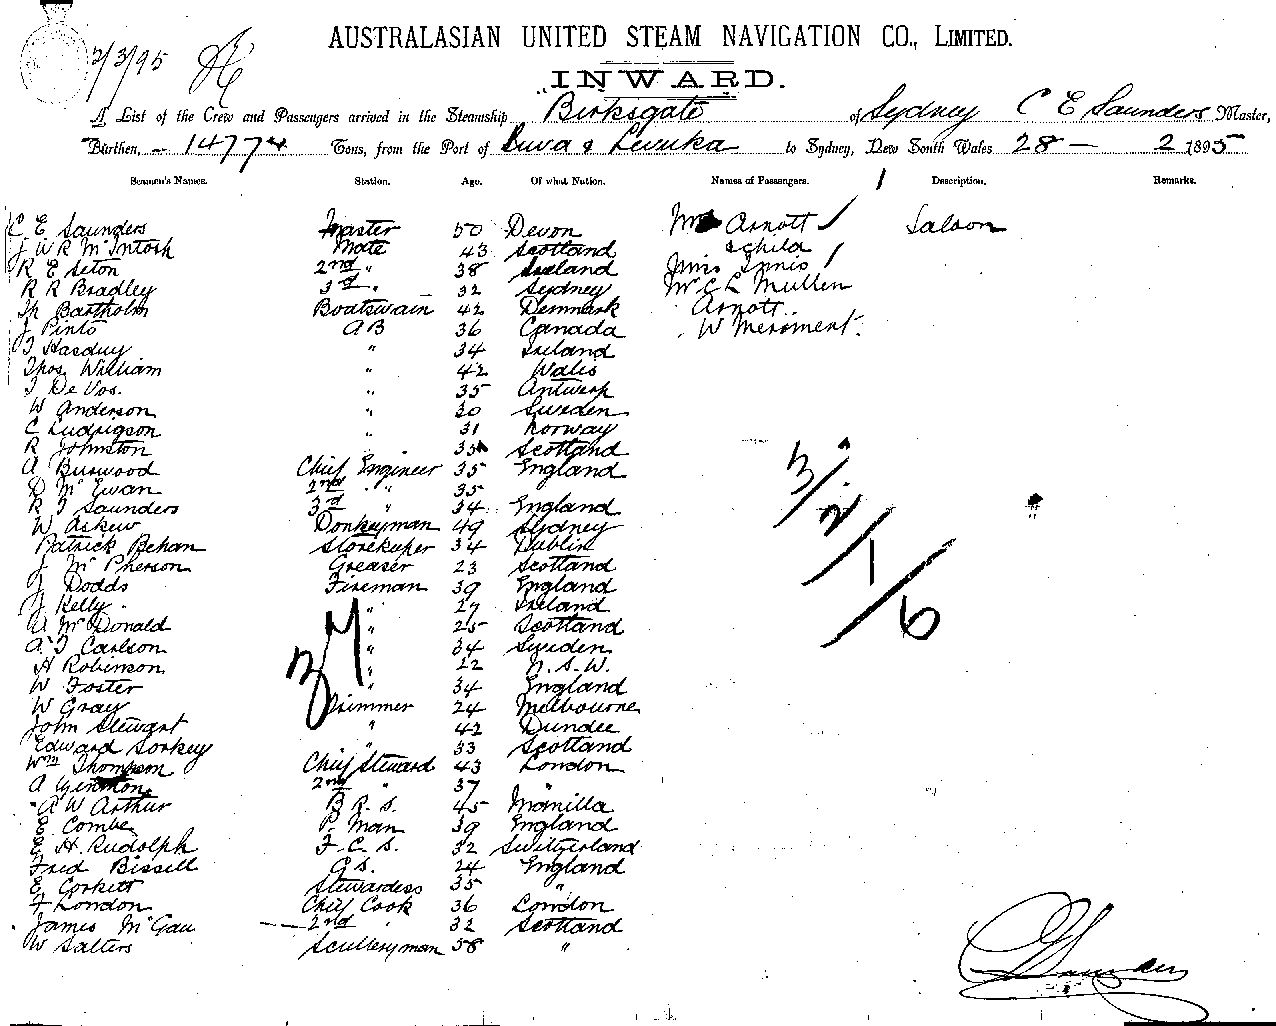 2/3/95
AUSTRALASIAN UNITED STEAM NAVIGATION CO., LIMITED.
INWARD.
A List of the Crew and Passengers arrived in the Steamship Birksgate of Sydney C E Saunders Master,
Burthen, 1477 4 Tons, from the Port of Suva & Levuka to Sydney, New South Wales 28 - 2 1895
Seamen's Names. Station. Age. Of what Nation. Names of Passengers. Description. Remarks.
C E Saunders Master 50 Devon Arnott Saloon
J W R McIntosh Mate 43 Scotland & child
R E Seton 2nd " 38 Ireland Miss Innis
R R Bradley 3rd " 32 Sydney Mr C L Mullen
Th Bartholm Boatswain 42 Denmark Arnott
J Pinto AB 36 Canada W Merriment
" 34 Ireland
Thos William " 42 Wales
De Vos. " 35 Antwerp
W Anderson " 30 Sweden
C Ludvigson " 31 Norway
R Johnston 35 Scotland
A Burwood Chief Engineer 35 England
D McEwan 2nd " 35
Saunders 3rd " 34 England
W Askew Donkeyman 49 Sydney
Patrick Behan Storekeeper 34 Dublin
J McPherson Greaser 23 Scotland
J Dodds Fireman 39 England
J Kelly " 27 Ireland
A McDonald " 25 Scotland
Carlson " 34 Sweden
H Robinson " 22 N.S.W.
W Foster " 34 England
W Gray Trimmer 24 Melbourne
John Stewart " 42 Dundee
Edward " 33 Scotland
Wm Thompson Chief Steward 43 London
A 2nd " 37 "
A W Arthur B.R.S. 45 Manilla
E Combe P. Man 39 England
E H. Rudolph F.C.S. 32 Switzerland
Fred Bissell 24 England
E Corkett Stewardess 35 "
F London Chief Cook 36 London
James McGau 2nd " 32 Scotland
W Salters Sculleryman 38 "
37
3/2/1/6